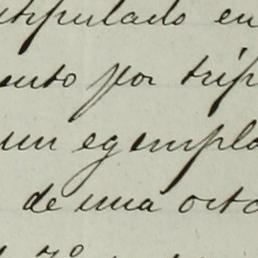 stipulado en
ento por trip
un egempla
de una octa
7º